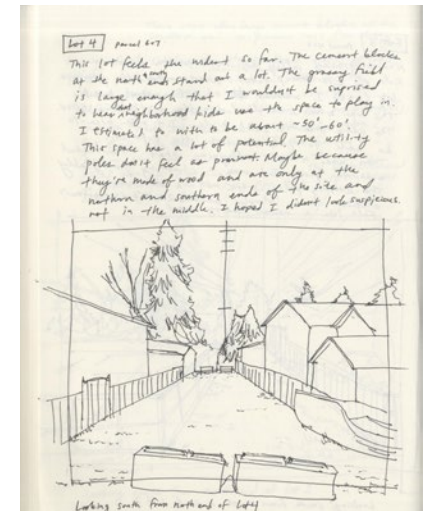 Lot 4 parcel 607
This lot feels the widest so far. The cement blocks
at the north ends stand out a lot. The grassy field
is large enough that I wouldnt be suprised
to hear that neighborhood kids use the space to play in.
I estimated to with to be about ~50'-60'.
This space has a lot of potential. The utility
poles dont feel as Maybe because
they're made of wood and are only at the
nothern and southern ends of the site and
not in the middle. I hoped I dident look suspicious.
Looking south from north end of Lot 4